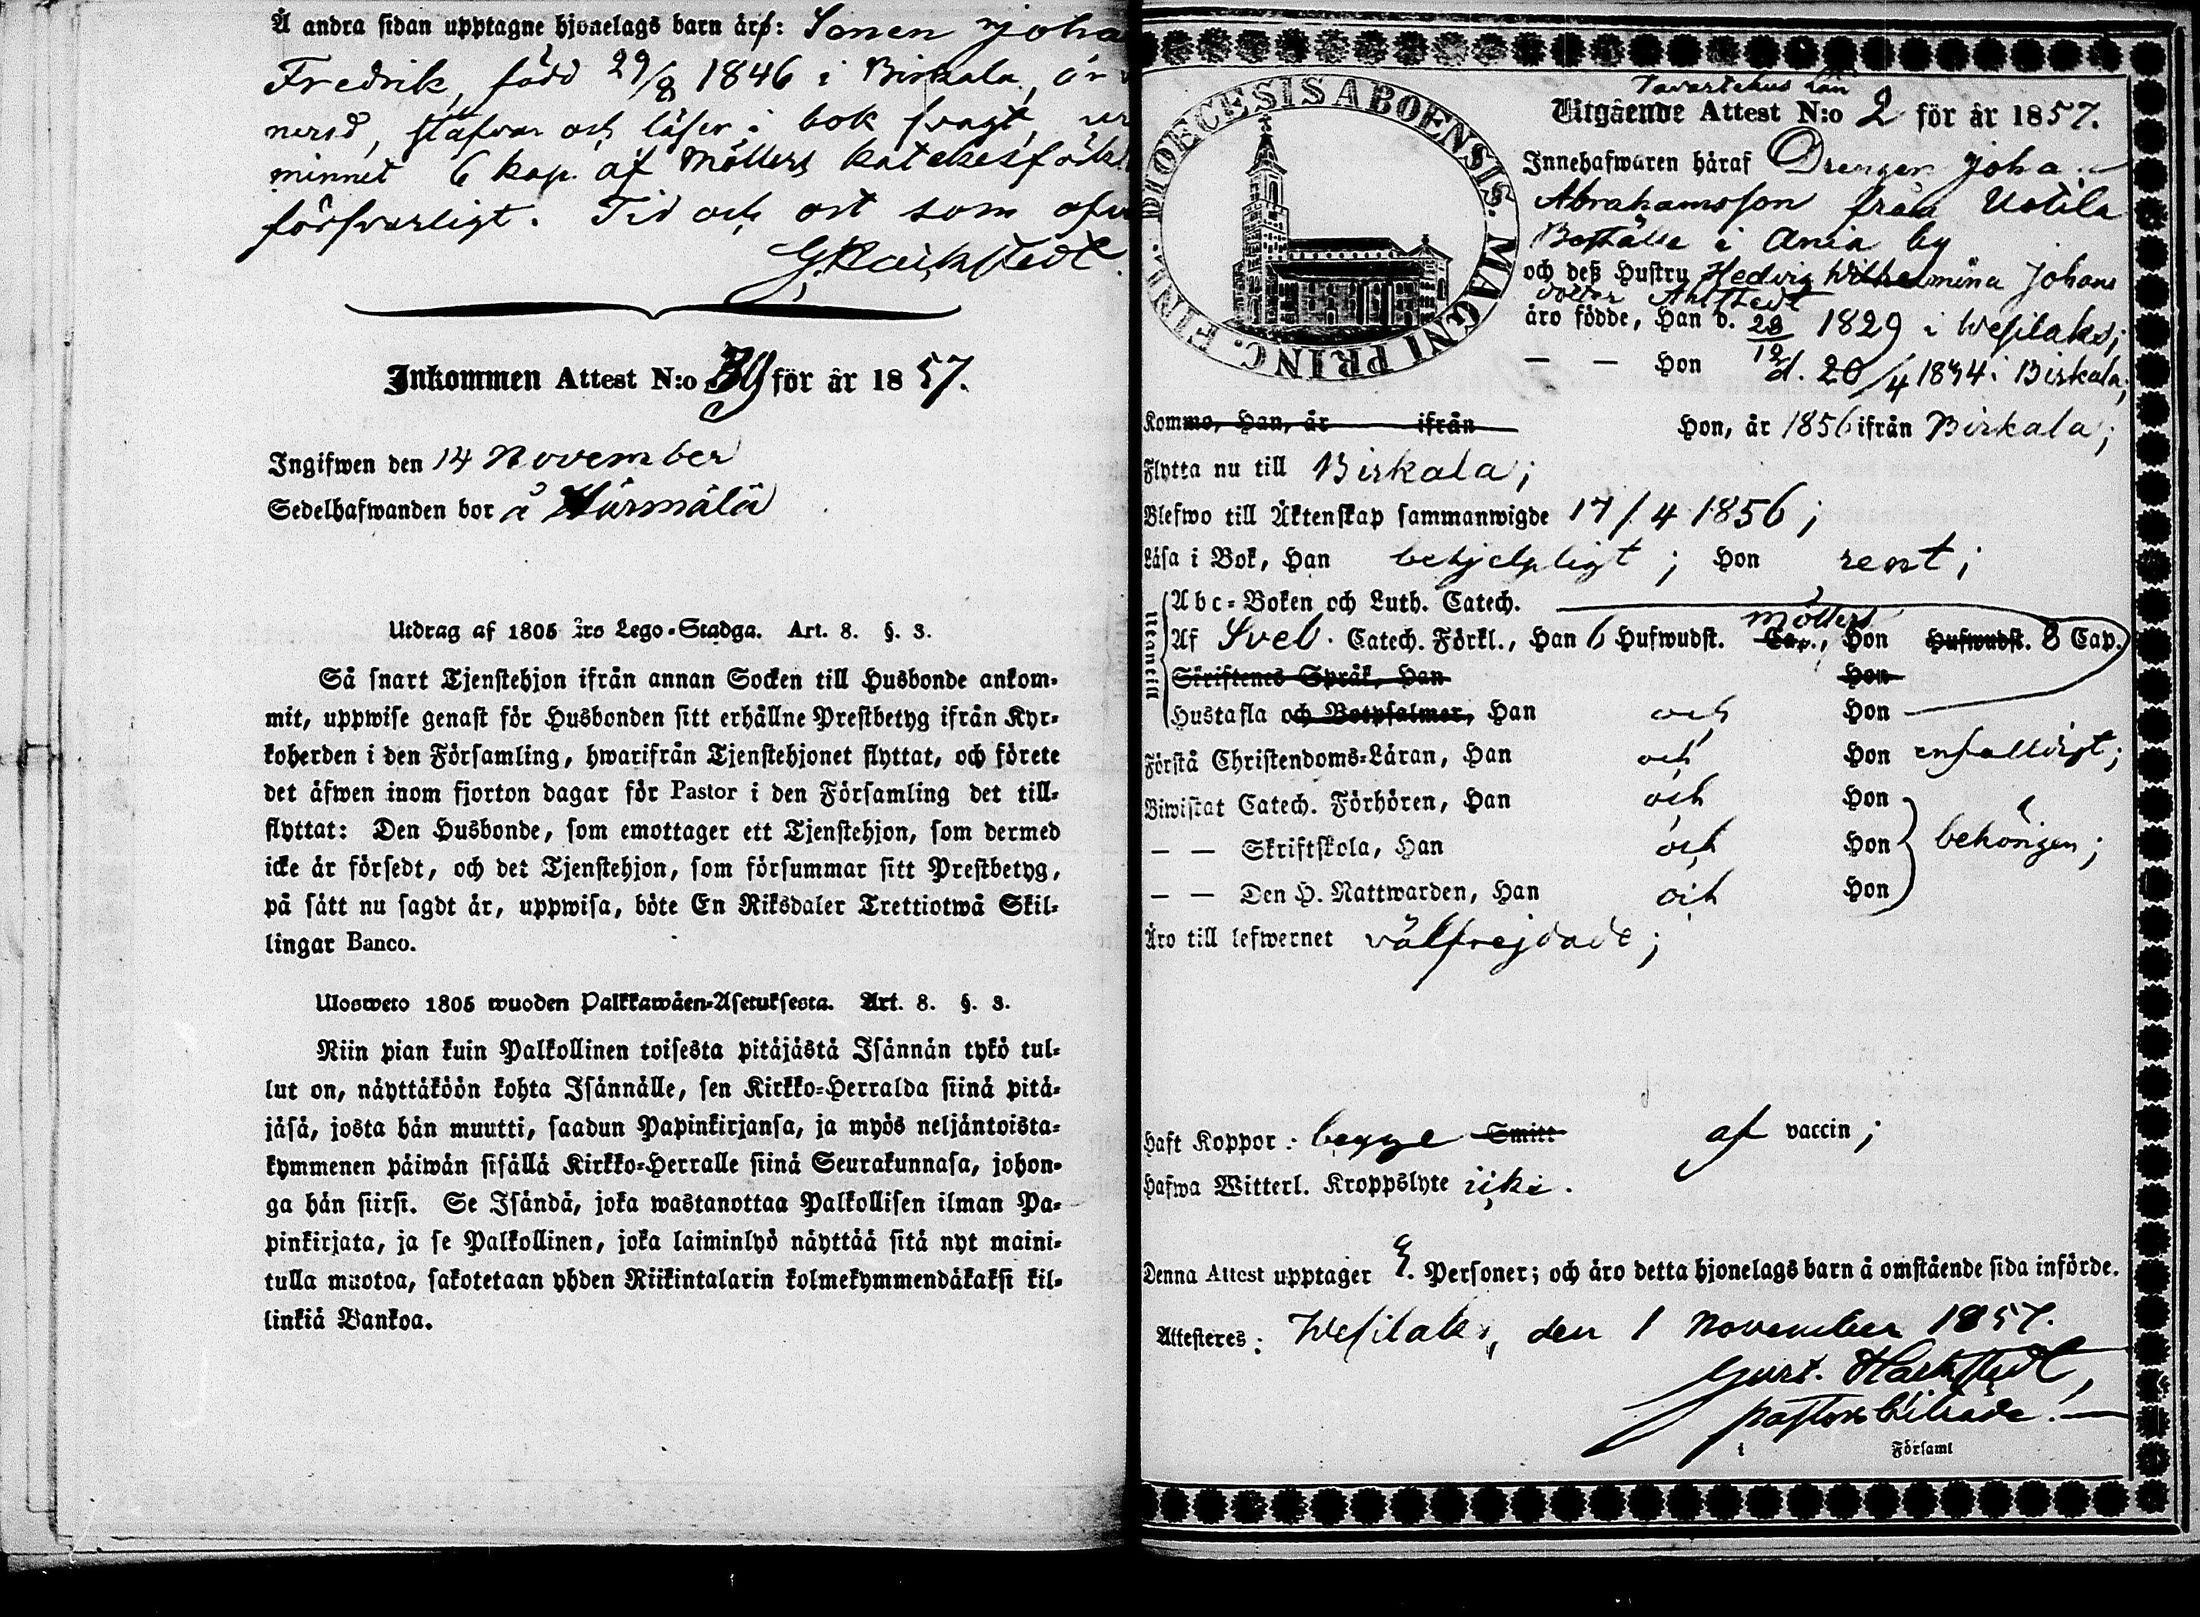 Å andra sidan upptagne hjonelags barn är: Sonen Joha
Fredrik, född 29/8 1846 i Birkala, är
nerad, stafvar och läser i bok svagt,
minnet 6 kap. af Möllers katekesförkl
försvarligt. Tid och ort som ofva
Inkommen Attest N:o 39 för år 1857.
Ingifwen den 14 November
Sedelhafwanden bor å Härmälä
Utdrag af 1805 års Lego-Stadga. Art. 8. §. 3.
Så snart Tjenstehjon ifrån annan Socken till Husbonde ankom-
mit, uppwise genast för Husbonden sitt erhållne Prestbetyg ifrån Kyr-
koherden i den Församling, hwarifrån Tjenstehjonet flyttat, och förete
det äfwen inom fjorton dagar för Pastor i den Församling det till-
flyttat: Den Husbonde, som emottager ett Tjenstehjon, som dermed
icke är försedt, och det Tjenstehjon, som försummar sitt Prestbetyg,
på sätt nu sagdt är, uppwisa, böte En Riksdaler Trettiotwå Skil-
lingar Banco.
Ulosweto 1805 wuoden Palkkawäen-Asetuksesta. Art. 8. §. 3.
Niin pian kuin Palkollinen toisesta pitäjästä Isännän tykö tul-
lut on, näyttäköön kohta Isännälle, sen Kirkko-Herralda siinä pitä-
jäsä, josta hän muutti, saadun Papinkirjansa, ja myös neljäntoista-
kymmenen päiwän sisällä Kirkko-Herralle siinä Seurakunnasa, johon-
ga hän siirsi. Se Isändä, joka wastanottaa Palkollisen ilman Pa-
pinkirjata, ja se Palkollinen, joka laiminlyö näyttää sitä nyt maini-
tulla muotoa, sakotetaan yhden Riikintalarin kolmekymmendäkaksi kil-
linkiä Bankoa.
DIOECESIS ABOENSIS. MAGNI PRINC. FINL.
Tavastehus Län
Utgående Attest N:o 2 för år 1857.
Innehafwaren häraf Drengen Joha
Abrahamsson från Uotila
Boställe i Ania by
och deß Hustru Hedvig Wilhelmina Johans
dotter Ahlstedt
äro födde, Han d. 28/12 1829 i Wesilaks;
— — Hon d. 20/4 1834 i Birkala;
Kommo, Han, år ifrån Hon, år 1856 ifrån Birkala;
Flytta nu till Birkala;
Blefwo till Äktenskap sammanwigde 17/4 1856;
Läsa i Bok, Han behjelpligt; Hon rent;
Utantill
Abc-Boken och Luth. Catech.
Af Sveb. Catech. Förkl., Han 6 Hufwudst. Cap., Möllers Hon Hufwudst. 8 Cap.
Skriftenes Språk, Han Hon
Hustafla och Botpsalmer, Han och Hon
Förstå Christendoms-Läran, Han och Hon enfaldigt;
Biwistat Catech. Förhören, Han och Hon
— — Skriftskola, Han och Hon behörigen;
— — Den H. Nattwarden, Han och Hon
Äro till lefwernet välfrejdade;
Haft Koppor: begge Smitt af vaccin;
Hafwa Witterl. Kroppslyte icke.
Denna Attest upptager Personer; och äro detta hjonelags barn å omstående sida införde.
Attesteres: Wesilaks, den 1 November 1857.
pastorsbiträde.
i Församl